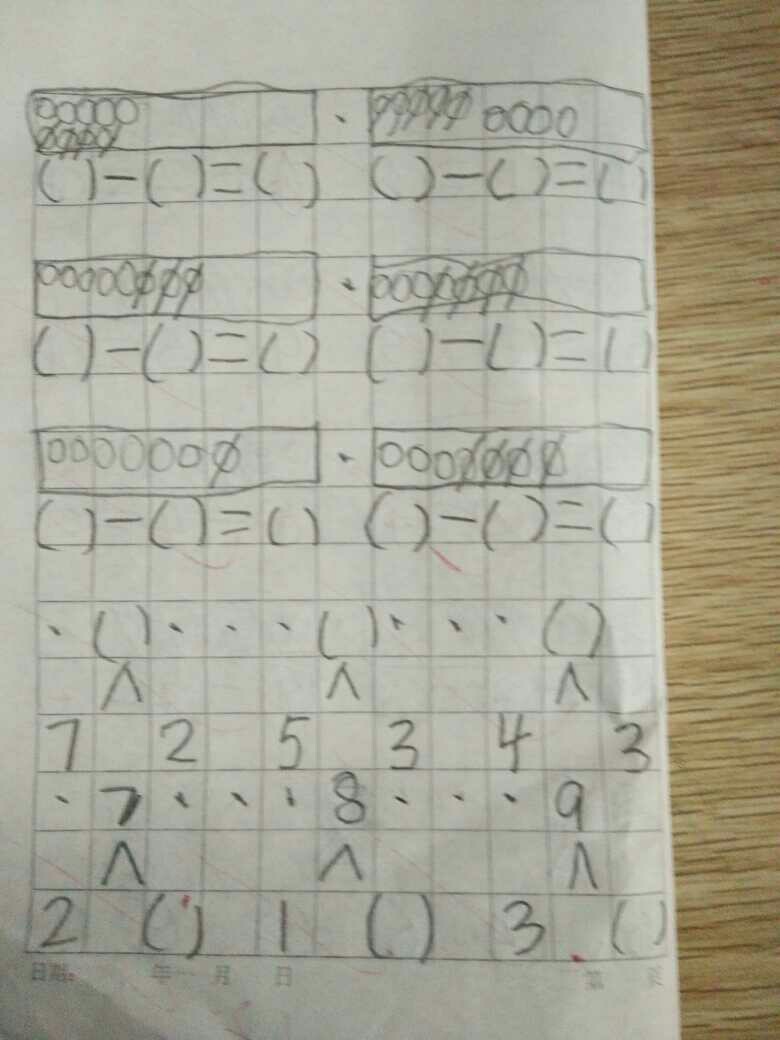 ( ) − ( ) = ( ) ( ) − ( ) = ( )
( ) − ( ) = ( ) ( ) − ( ) = ( )
( ) − ( ) = ( ) ( ) − ( ) = ( )
· ( ) · · · ( ) · · · ( )
∧ ∧ ∧
7 2 5 3 4 3
· 7 · · · 8 · · · 9
∧ ∧ ∧
2 ( ) 1 ( ) 3 ( )
日期: 年 月 日 第 页